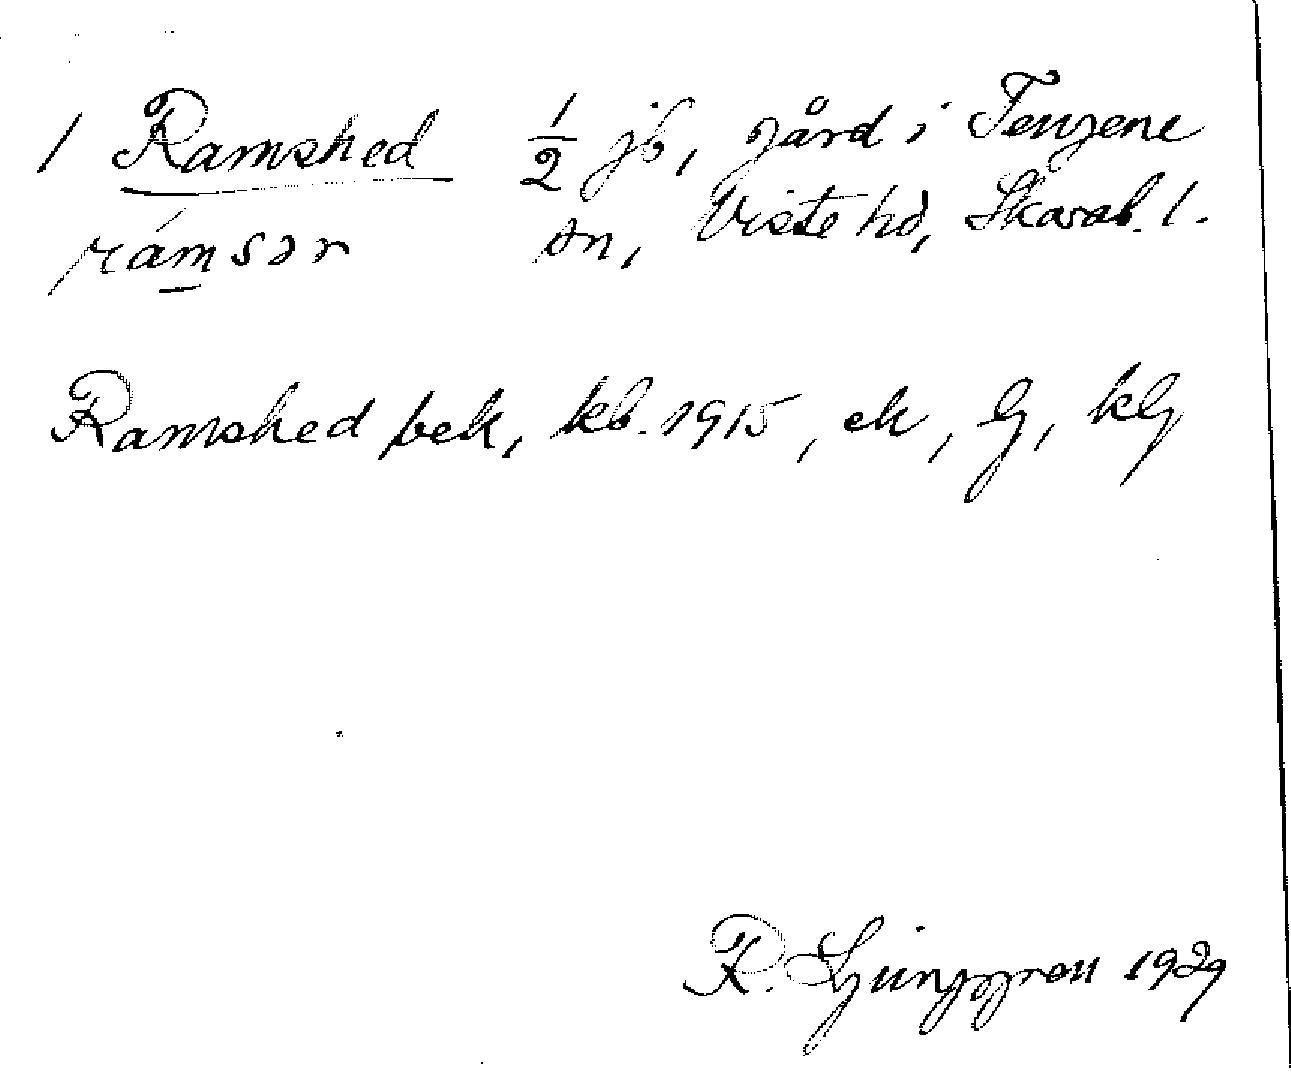 1 Ramshed ½ jb, gård i Tengene
rámsər sn, Viste hd, Skarab. l.
Ramshed bek, kb. 1915, ek, G, kG
R. Ljunggren 1929